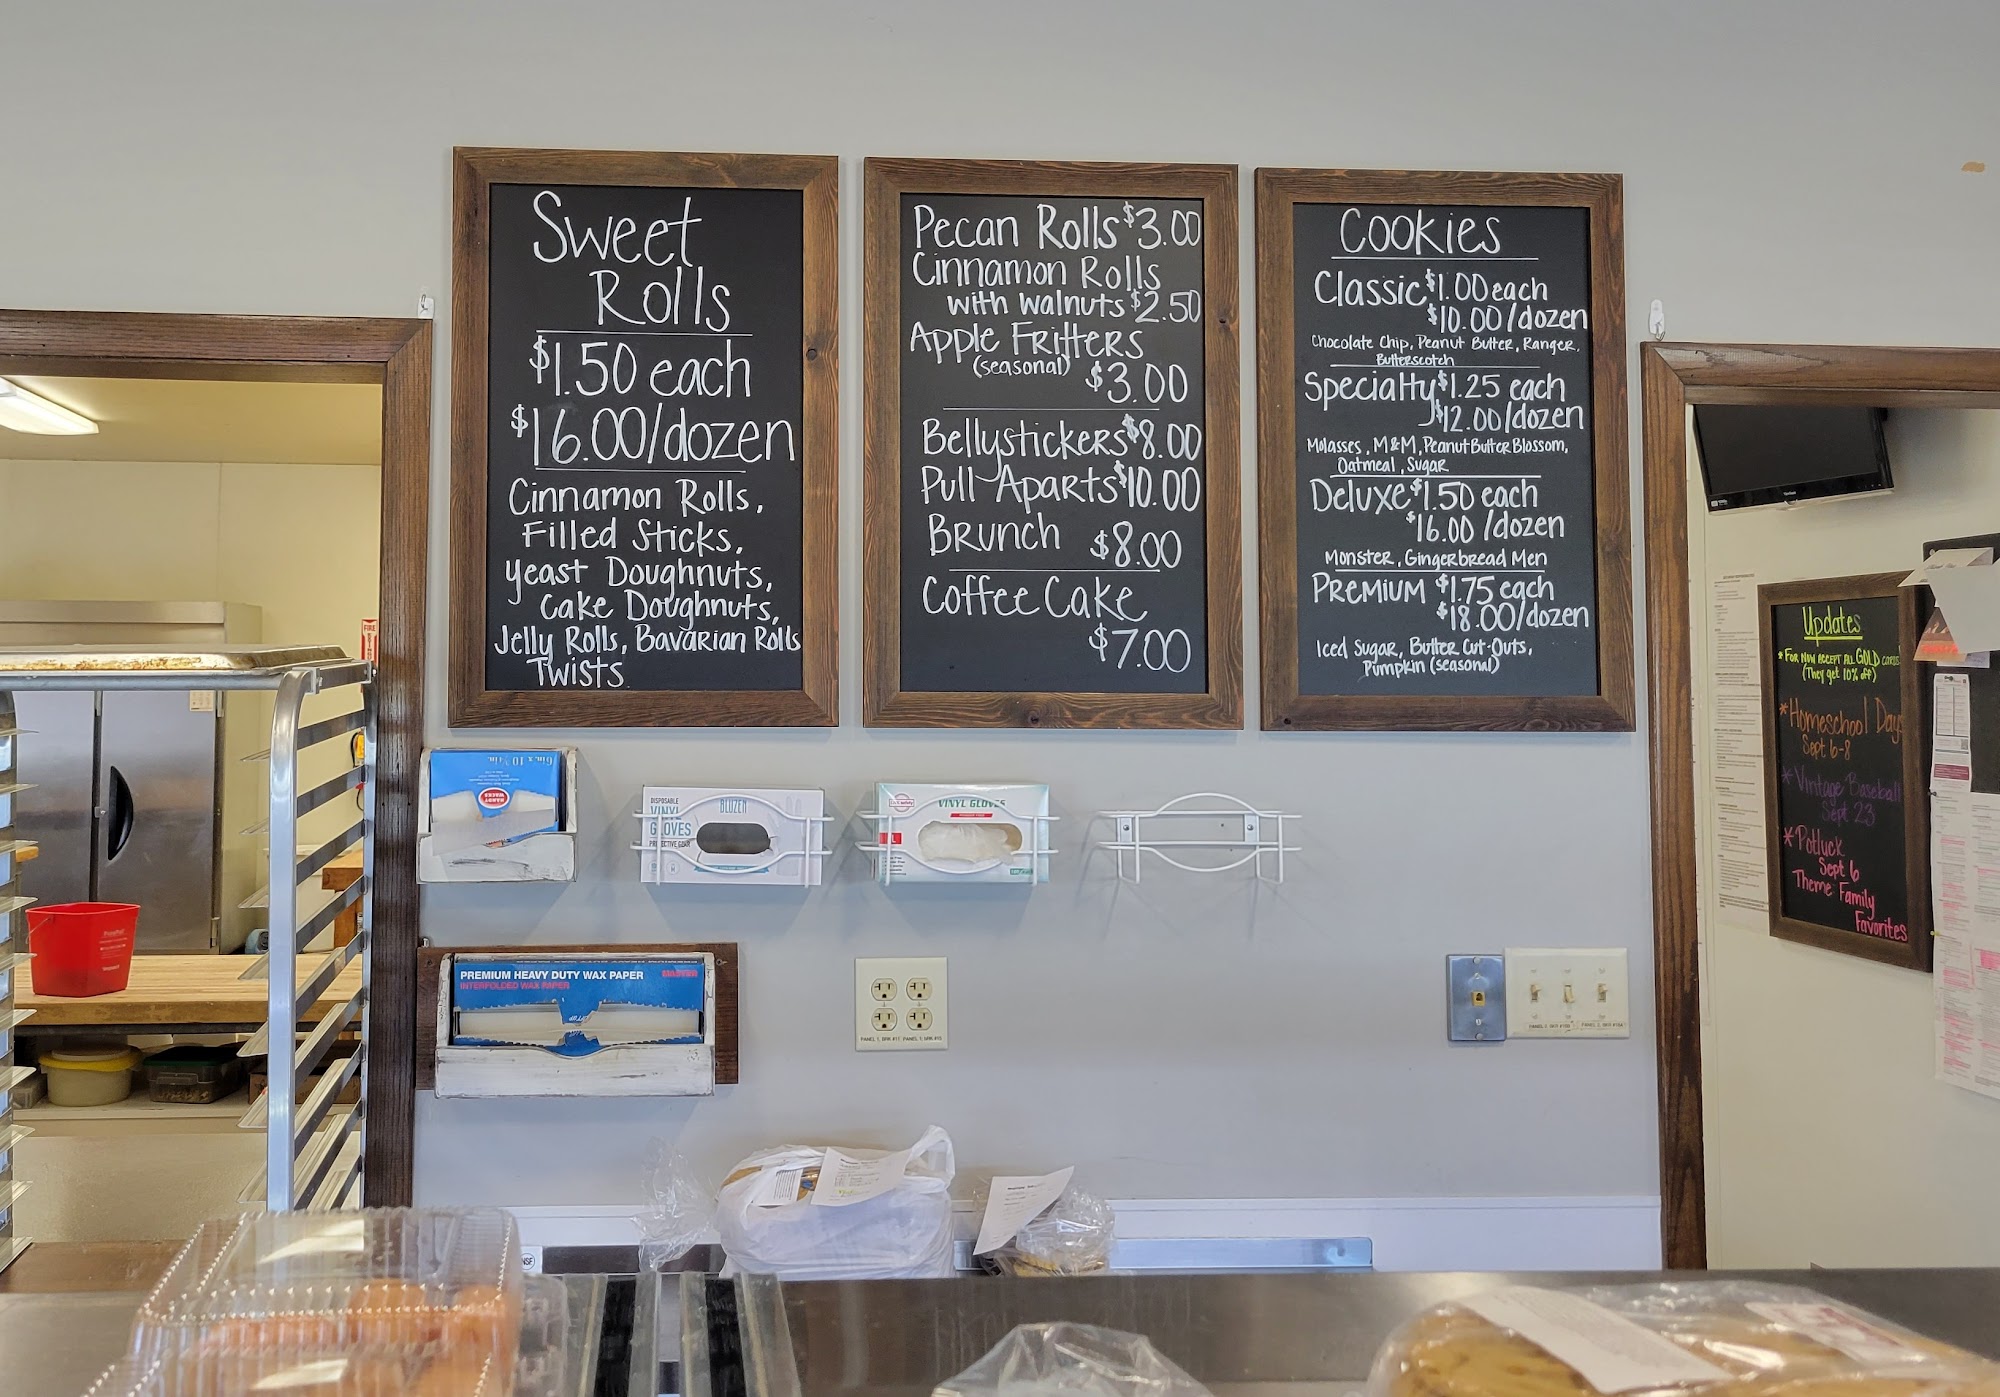 Sweet
Rolls
$1.50 each
$16.00/dozen
Cinnamon Rolls,
Filled Sticks,
Yeast Doughnuts,
Cake Doughnuts,
Jelly Rolls, Bavarian Rolls
Twists
Pecan Rolls $3.00
Cinnamon Rolls
with walnuts $2.50
Apple Fritters
(seasonal) $3.00
Bellystickers $8.00
Pull-Aparts $10.00
Brunch $8.00
Coffee Cake
$7.00
Cookies
Classic $1.00 each
$10.00/dozen
Chocolate Chip, Peanut Butter, Ranger,
Butterscotch
Specialty $1.25 each
$12.00/dozen
Molasses, M&M, Peanut Butter Blossom,
Oatmeal, Sugar
Deluxe $1.50 each
$16.00 /dozen
Monster, Gingerbread Men
Premium $1.75 each
$18.00/dozen
Iced Sugar, Butter Cut-Outs,
Pumpkin (seasonal)
Updates
*For now accept all GOLD cards
(They get 10% off)
*Homeschool Days
Sept 6-8
*Vintage Baseball
Sept 23
*Potluck
Sept 6
Theme: Family
Favorites
FIRE
HANDY
WACKS
DISPOSABLE
VINYL
GLOVES
PROTECTIVE GEAR
BLOZEN
VINYL GLOVES
L
PREMIUM HEAVY DUTY WAX PAPER
INTERFOLDED WAX PAPER
NSF